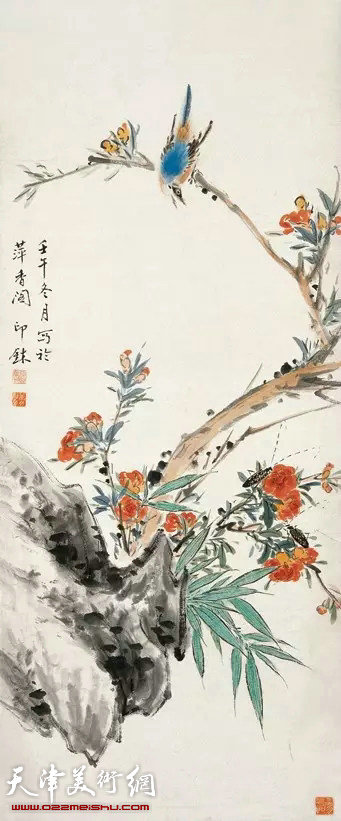 壬午冬月写於
萍香阁印鉌
天津美術網
www.022meishu.com